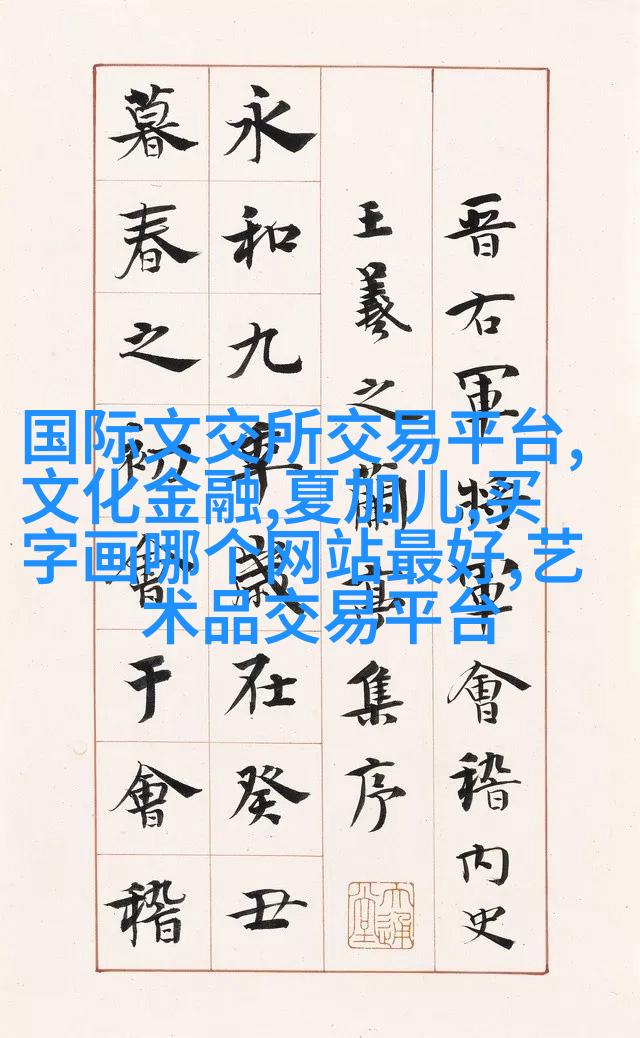 晋右軍将軍會稽内史
王羲之蘭亭集序
永和九年歲在癸丑
暮春之初會于會稽
国际文交所交易平台,
文化金融,夏加儿,买
字画哪个网站最好,艺
术品交易平台